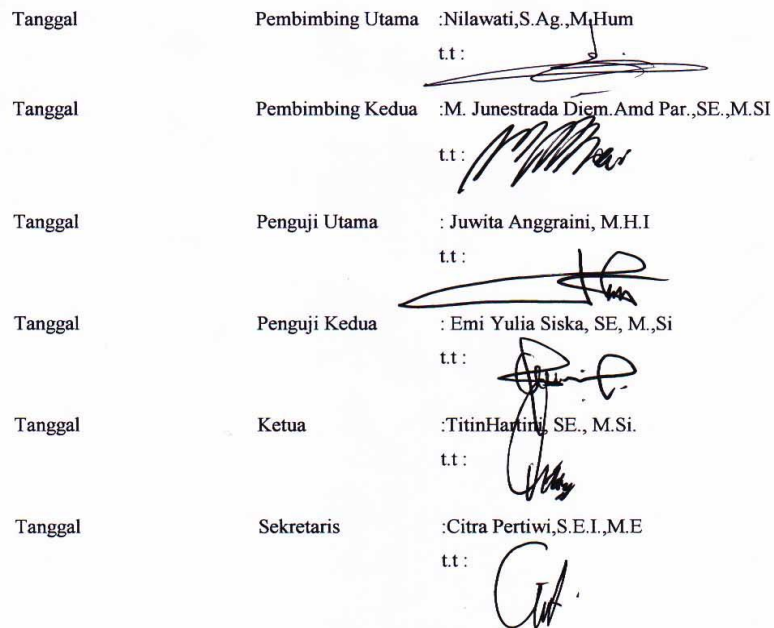 Tanggal Pembimbing Utama :Nilawati,S.Ag.,M.Hum
t.t :
Tanggal Pembimbing Kedua :M. Junestrada Diem.Amd Par.,SE.,M.SI
t.t :
Tanggal Penguji Utama : Juwita Anggraini, M.H.I
t.t :
Tanggal Penguji Kedua : Emi Yulia Siska, SE, M.,Si
t.t :
Tanggal Ketua :TitinHartini, SE., M.Si.
t.t :
Tanggal Sekretaris :Citra Pertiwi,S.E.I.,M.E
t.t :